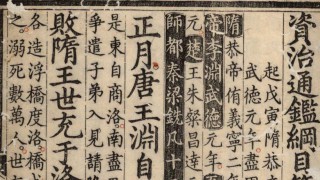 資治通鑑綱目
起戊寅隋恭
武德元年盡
隋恭帝侑義寧二
帝李淵武德元年
元楚王朱粲昌達
師都秦梁鼓凡十
正月唐王淵自
是東自商洛南盡
爭遣子弟入見請
敗隋王世充于洛
各造浮橋度洛
之溺死數萬人